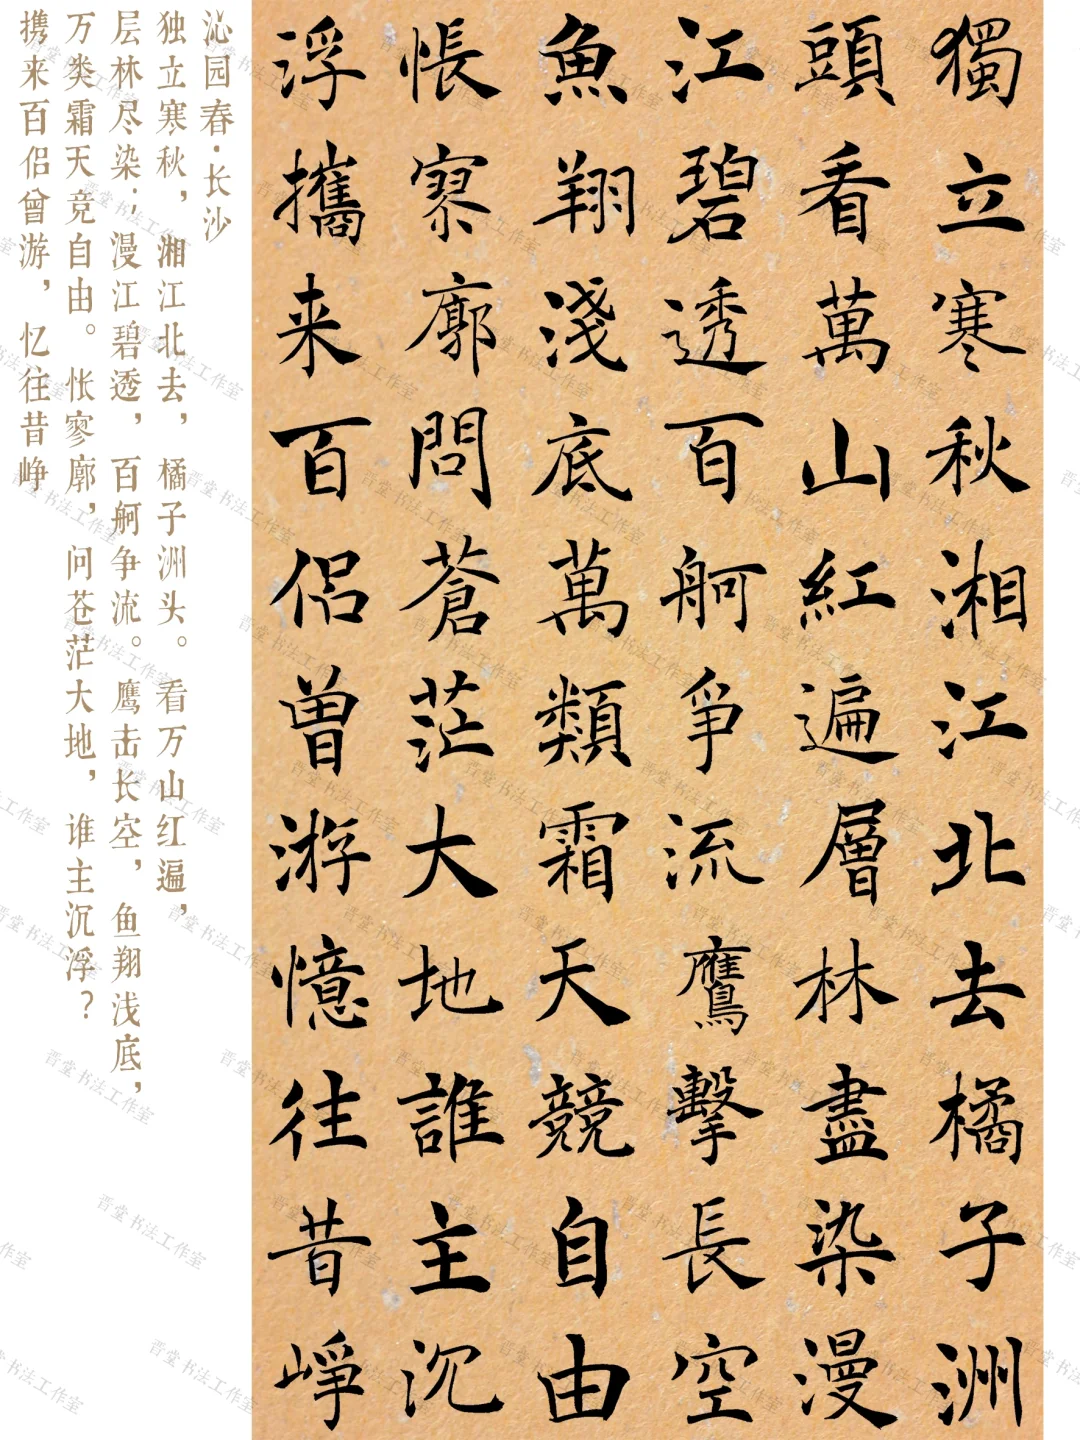 獨立寒秋湘江北去橘子洲
頭看萬山紅遍層林盡染漫
江碧透百舸爭流鷹擊長空
魚翔淺底萬類霜天競自由
悵寥廓問蒼茫大地誰主沉
浮攜来百侣曾游憶往昔崢
沁园春·长沙
独立寒秋，湘江北去，橘子洲头。看万山红遍，
层林尽染；漫江碧透，百舸争流。鹰击长空，鱼翔浅底，
万类霜天竞自由。怅寥廓，问苍茫大地，谁主沉浮？
携来百侣曾游，忆往昔峥
晋堂书法工作室